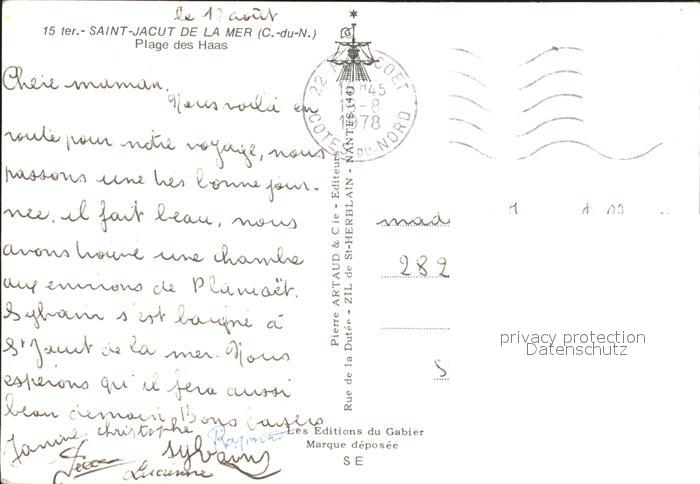 le 17 août
15 ter.- SAINT-JACUT DE LA MER (C.-du-N.)
Plage des Haas
Chère maman,
Nous voilà en
route pour notre voyage, nous
passons une très bonne jour-
née, il fait beau, nous
avons trouvé une chambre
aux environs de
Sylvain s'est baigné à
St Jacut de la mer. Nous
espérons qu'il fera aussi
beau demain. Bons baisers
Janine christophe Raymond
Sylvain
Lucienne
22
45
-8
1978
COTES-DU-NORD
Pierre ARTAUD & Cie - Editeurs
Rue de la Dutée - ZIL de St-HERBLAIN - NANTES (44)
mad
282
S
privacy protection
Datenschutz
Les Editions du Gabier
Marque déposée
SE